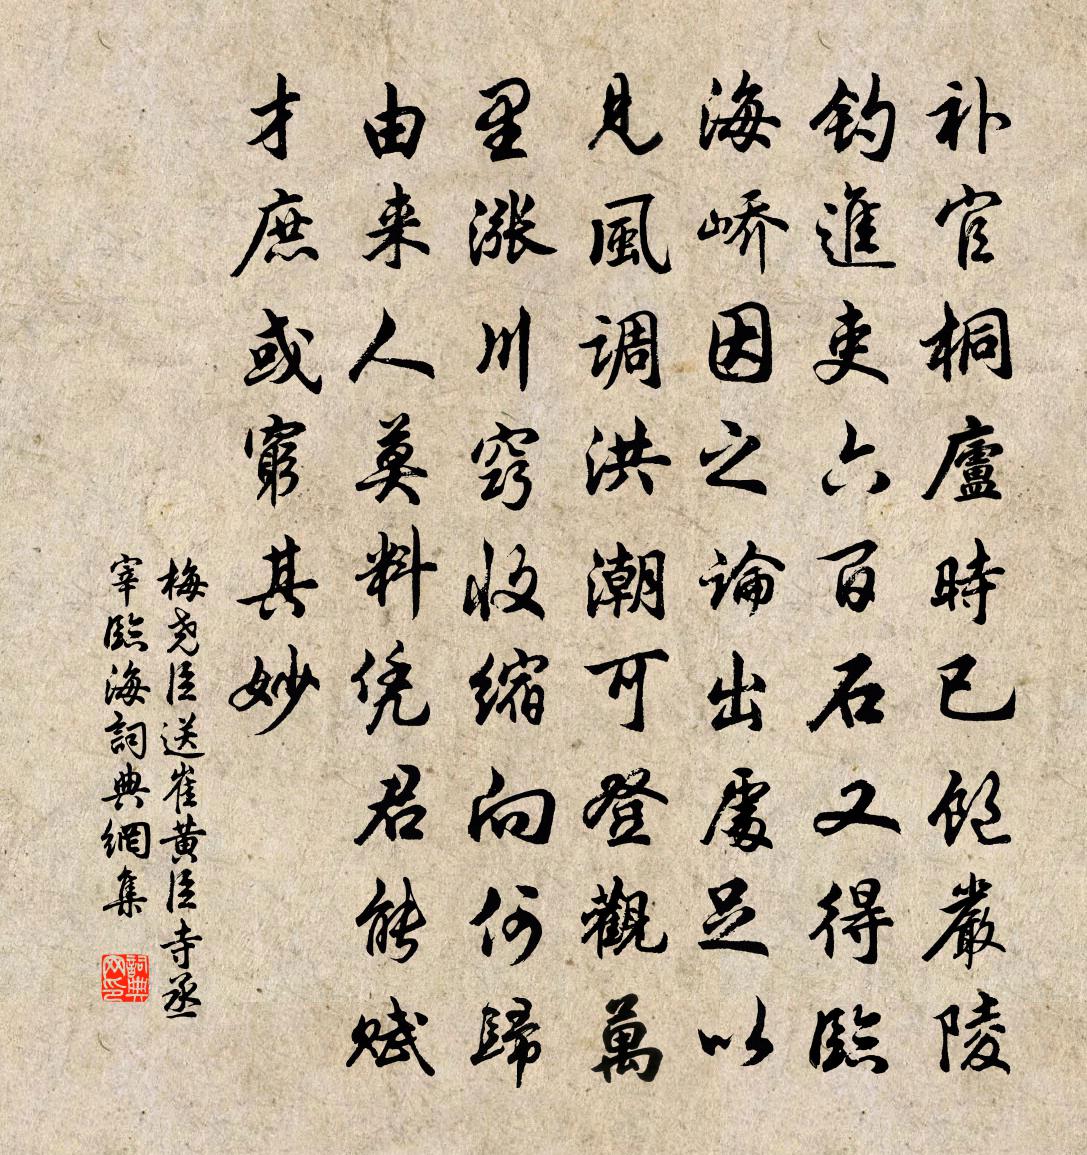 补官桐廬時已飽嚴陵
钓進吏六百石又得臨
海峤因之論出處足以
見風调洪潮可登觀萬
里涨川竅收縮向何歸
由来人莫料凭君能賦
才庶或窮其妙
梅尧臣送崔黄臣寺丞
宰臨海詞典網集
詞典网印